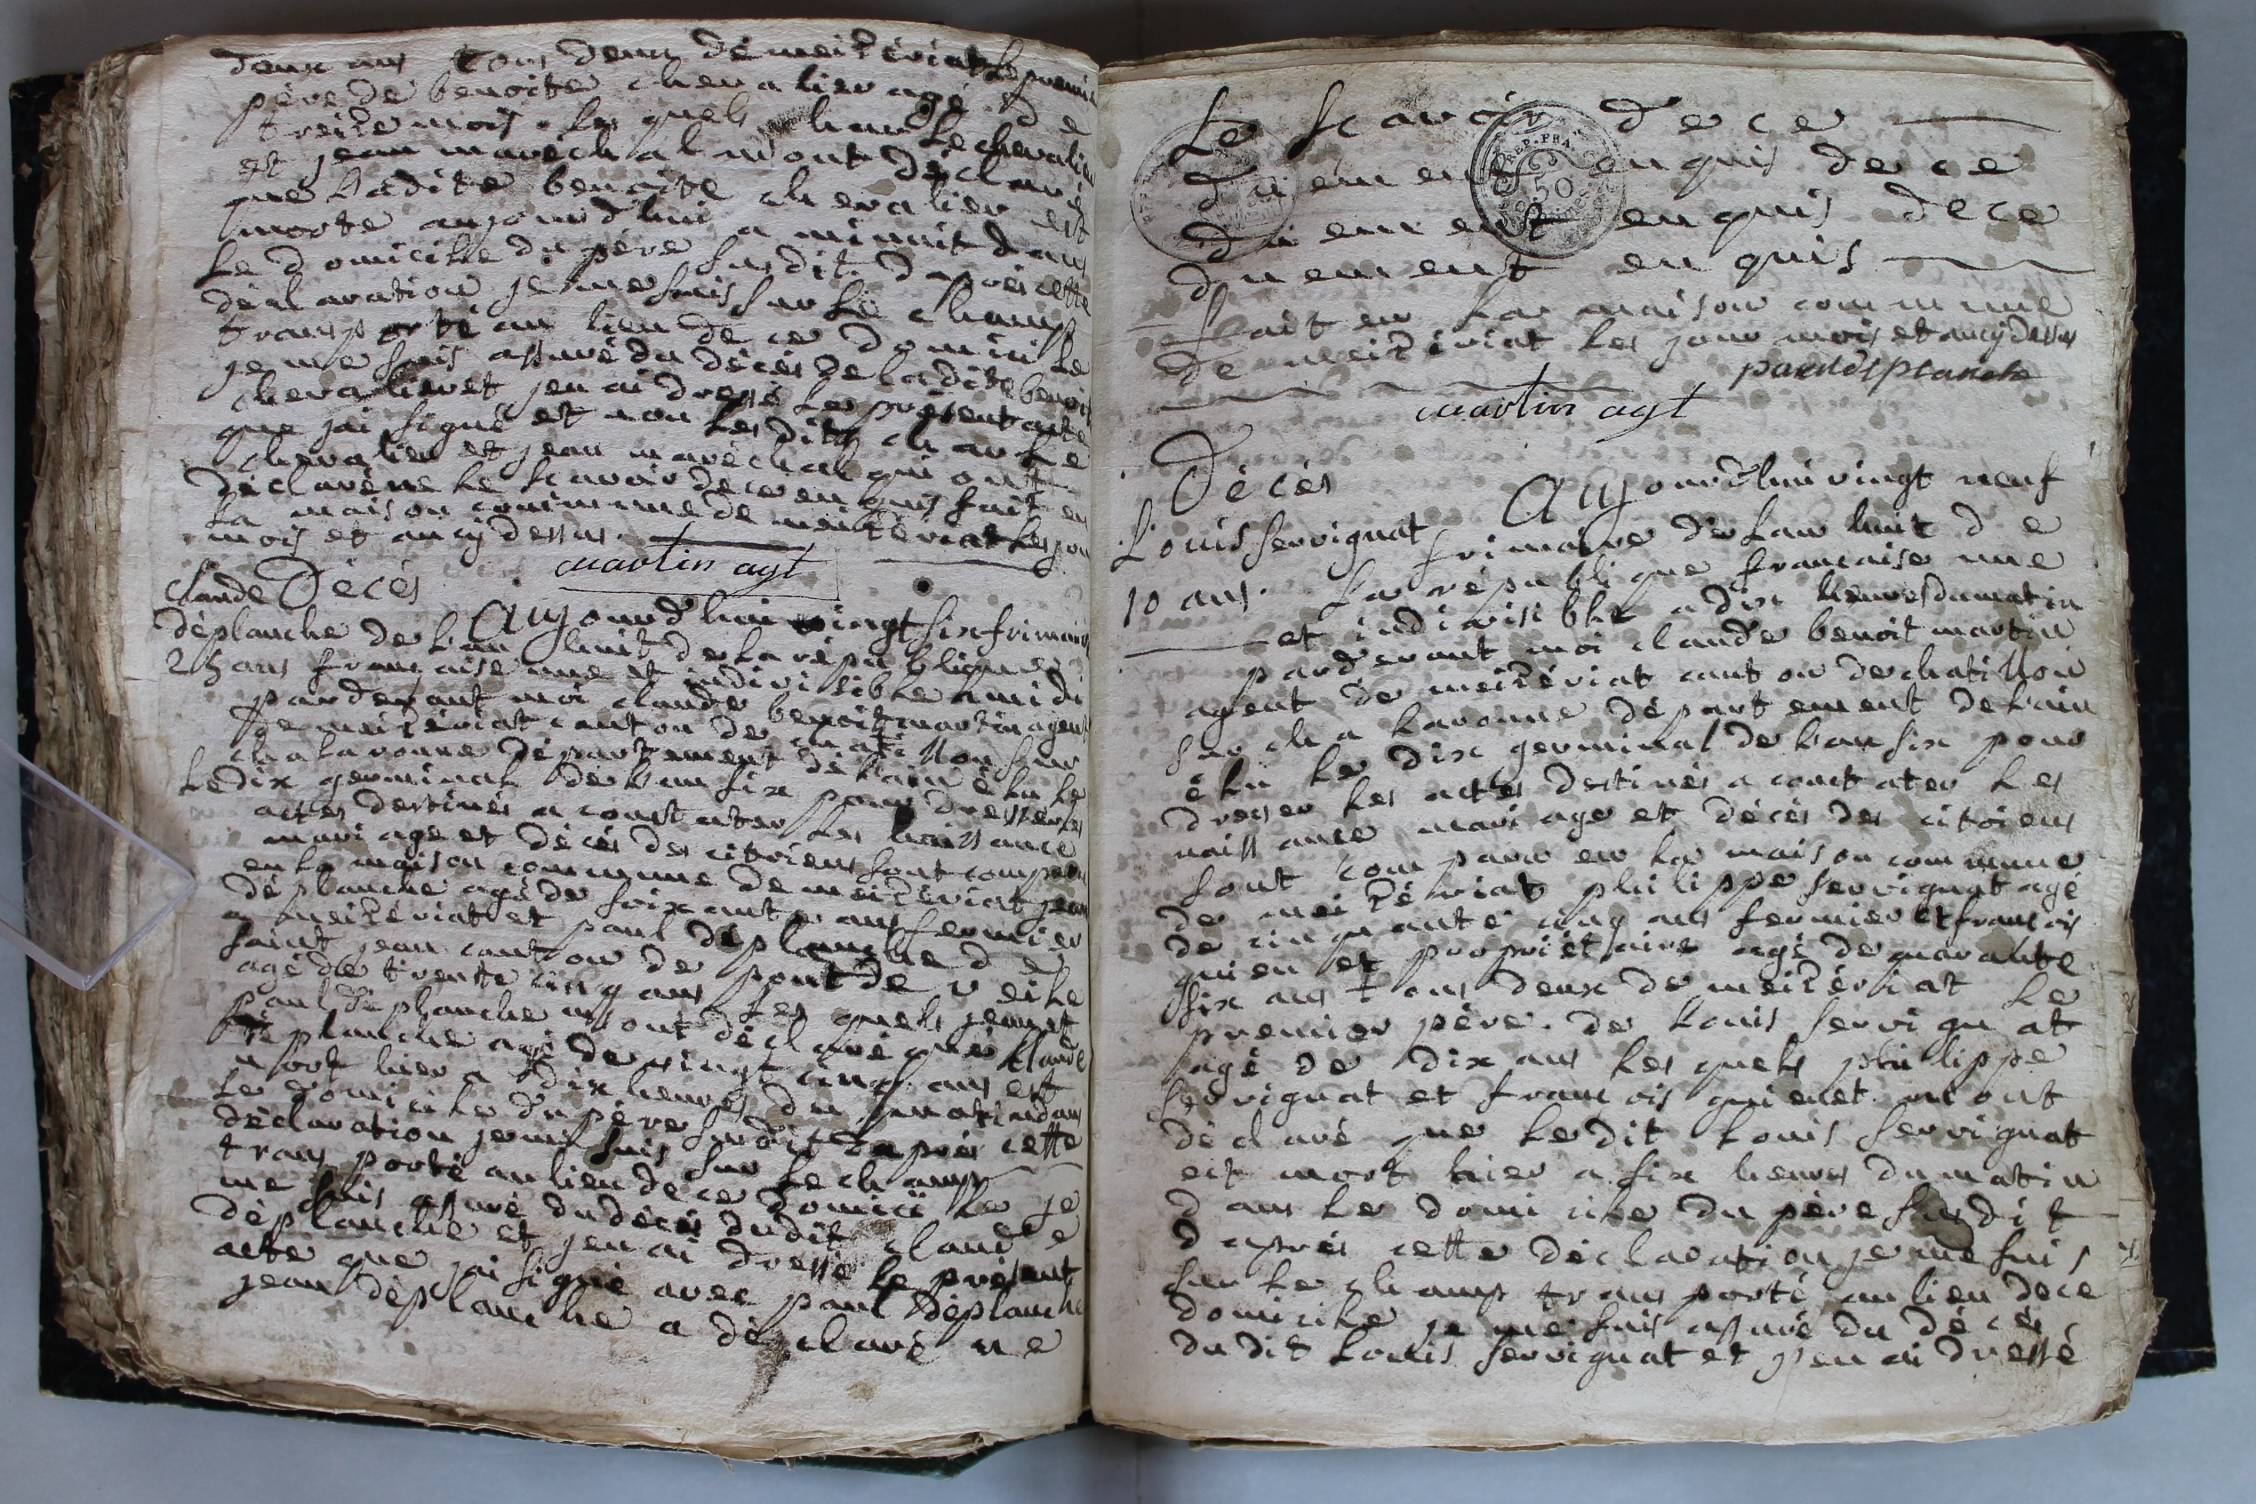 deux ans tous deux de meizériat le premier
père de benoite chevalier agé de
treize mois. les quels charle chevalier
et jean maréchal m'ont déclaré
que ladite benoite chevalier est
morte aujourd'hui a minuit dans
le domicile du père susdit. d'après cette
déclaration je me suis sur le champ
transporté au lieu de ce domicile
je me suis assuré du décès de ladite benoite
chevalier et jen ai dressé le présent acte
que jai signé et non les dits charle
chevalier et jean maréchal qui ont
déclaré ne le scavoir de ce enquis fait en
la maison commune de meizériat les jour
mois et an cy dessus.
martin agt
Décès
claude
déplanche
25 ans
Aujourd'hui vingt six frimaire
de l'an huit de la république
française une et indivisible a midi
pardevant moi claude benoit martin agent
de meizériat canton de chatillon sur
chalaronne département de l'ain élu le
le dix germinal de l'an six pour dresser les
actes destinés a constater les naissance
mariage et décès des citoiens sont comparu
en la maison commune de meizériat jean
déplanche agé de soixante ans fermier
a meizériat et paul déplanche de
saint jean canton de pont de veile
agé de trente cinq ans les quels jean et
paul déplanche m'ont déclaré que claude
déplanche agé de vingt cinq ans est
mort hier a dix heures du matin dans
le domicile du père susdit d'après cette
déclaration je me suis sur le champ
transporté au lieu de ce domicile je
me suis assuré du décès dudit claude
déplanche et jen ai dressé le présent
acte que jai signé avec paul déplanche
jean déplanche a déclaré ne
le scavoir de ce
duement enquis de ce
duement enquis de ce
duement enquis
fait en la maison commune
de meizériat les jour mois et an cy dessus
paul déplanche
martin agt
Décès
Louis servignat
10 ans.
Aujourd'hui vingt neuf
frimaire de l'an huit de
la république française une
et indivisible a dix heures du matin
pardevant moi claude benoit martin
agent de meizériat canton de chatillon
sur chalaronne département de l'ain
élu le dix germinal de l'an six pour
dresser les actes destinés a constater les
naissance mariage et décès des citoiens
sont comparu en la maison commune
de meizériat philippe servignat agé
de cinquante cinq ans fermier et francois
quienet propriétaire agé de quarante
six ans tous deux de meizériat le
premier père de louis servignat
agé de dix ans les quels philippe
servignat et francois quienet m'ont
déclaré que ledit louis servignat
est mort hier a six heures du matin
dans le domicile du père susdit
d'après cette déclaration je me suis
sur le champ transporté au lieu de ce
domicile je me suis assuré du décès
dudit louis servignat et jen ai dressé